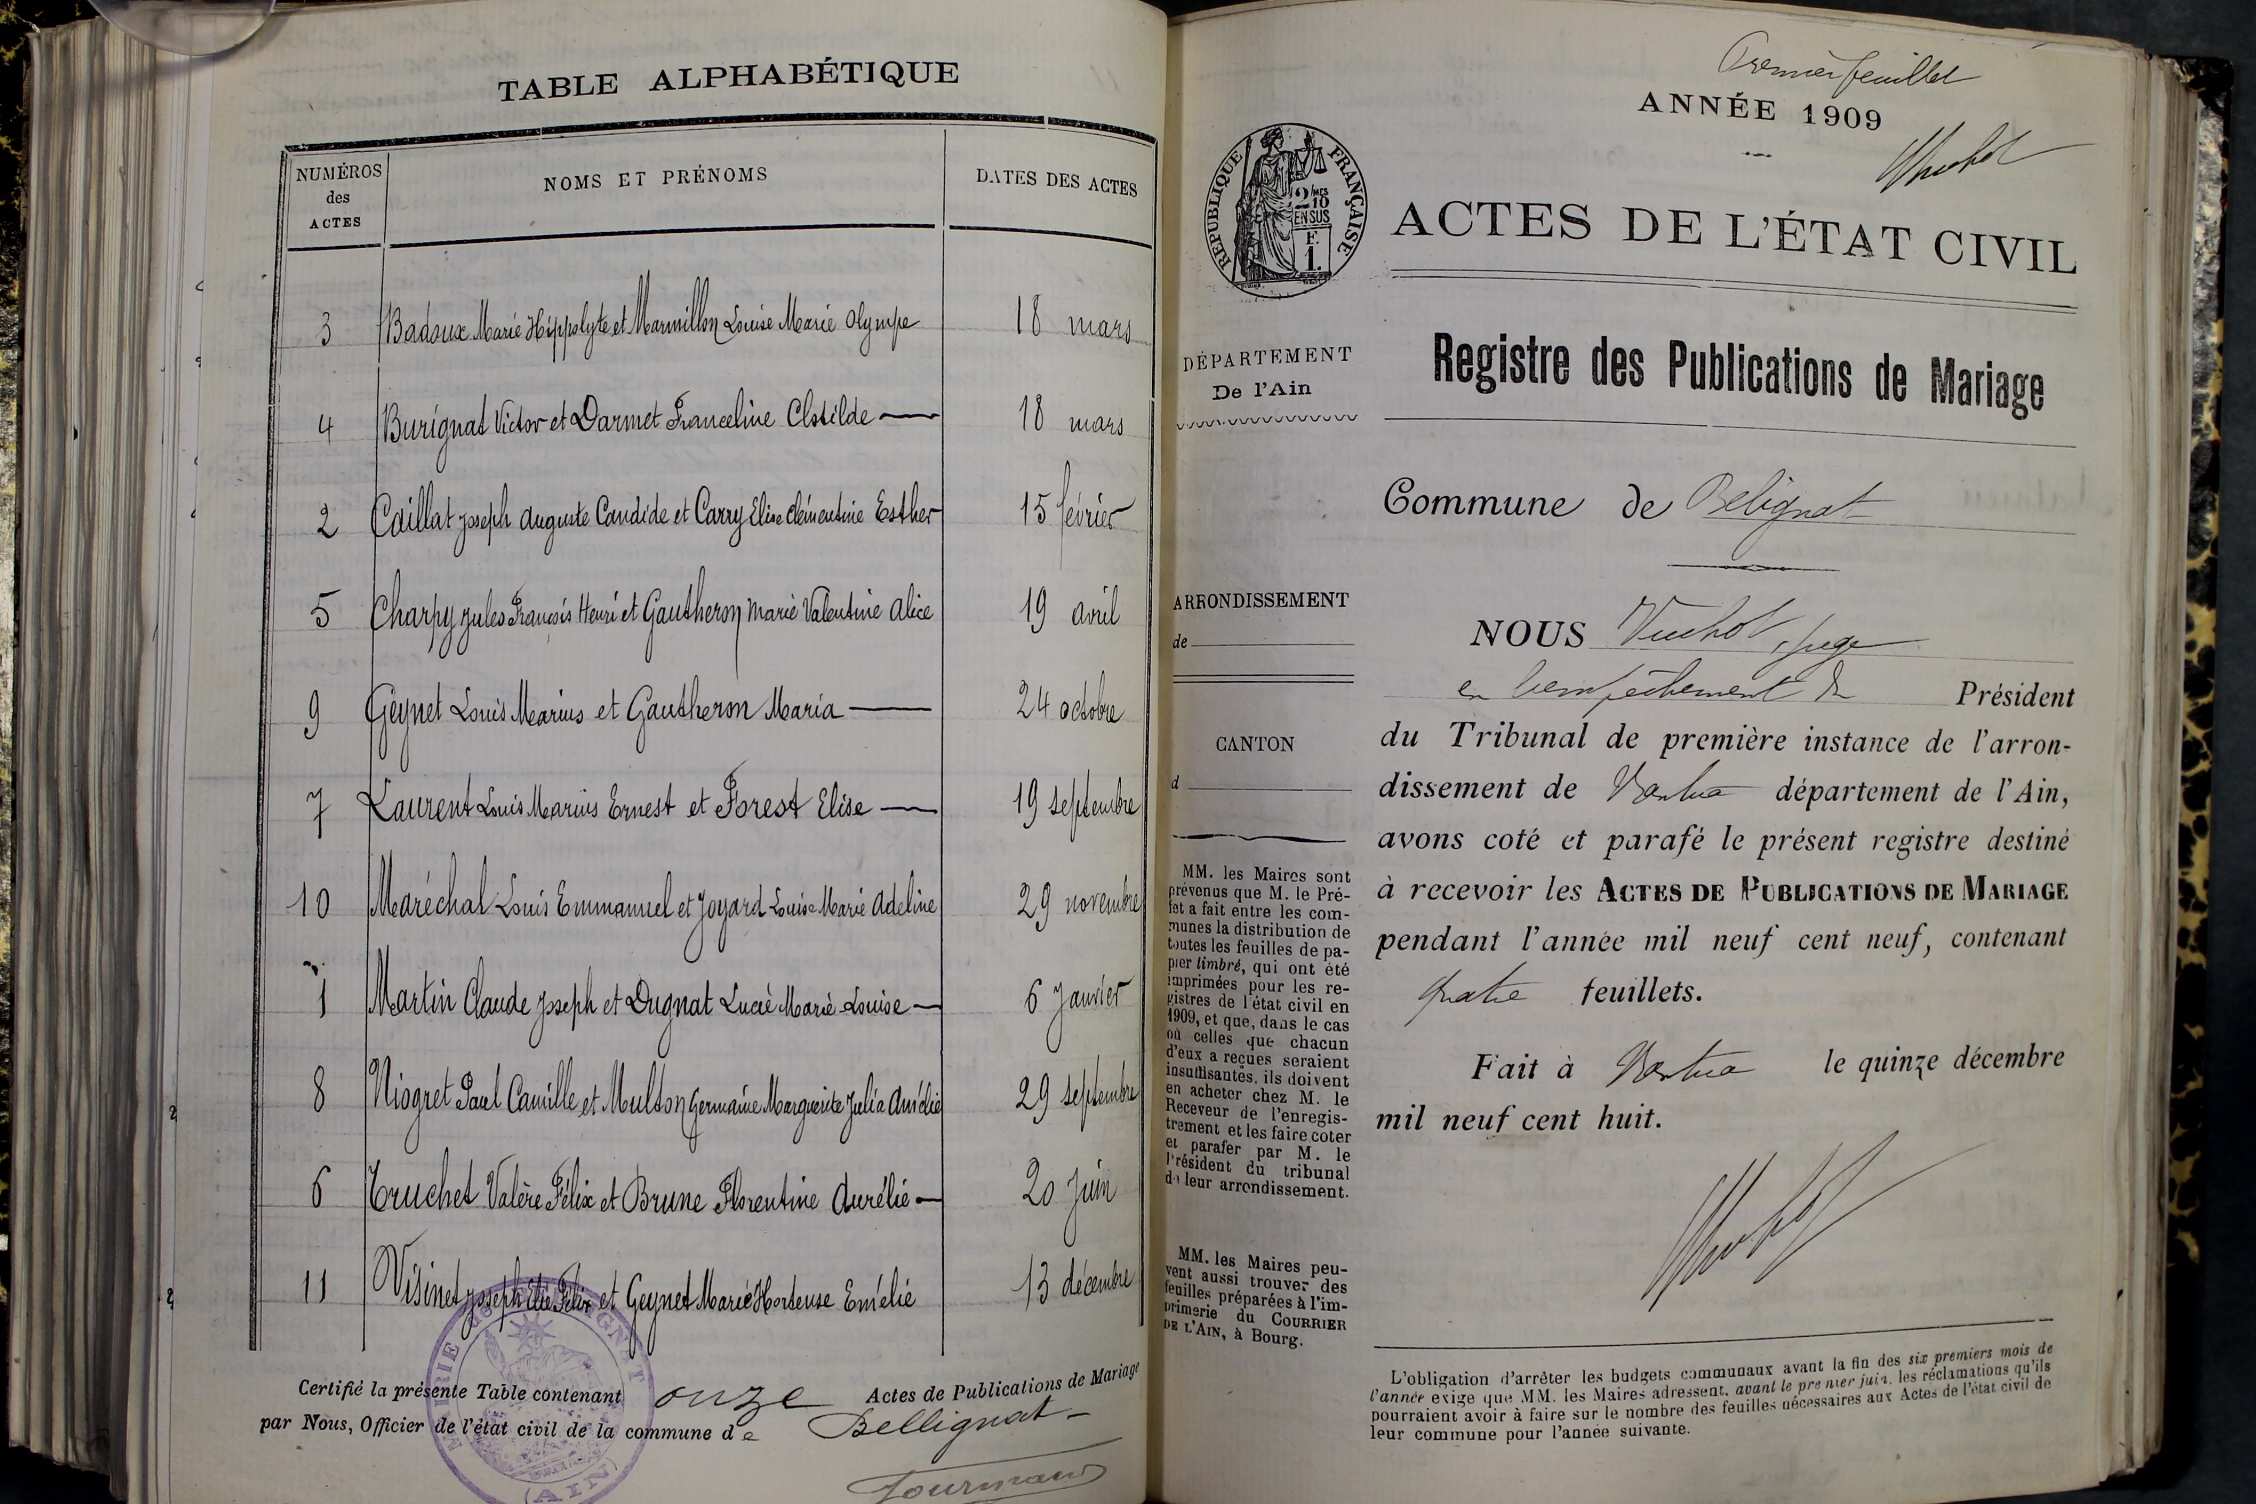 TABLE ALPHABÉTIQUE
NUMÉROS
des
ACTES
NOMS ET PRÉNOMS
DATES DES ACTES
3 Badoux Marie Hippolyte et Marmillon Louise Marie Olympe 18 mars
4 Burignat Victor et Darmet Franceline Clotilde — 18 mars
2 Caillat Joseph Auguste Candide et Carry Elise Clémentine Esther 15 février
5 Charpy Jules François Henri et Gautheron Marie Valentine Alice 19 avril
9 Geynet Louis Marius et Gautheron Maria — 24 octobre
7 Laurent Louis Marius Ernest et Forest Elise — 19 septembre
10 Maréchal Louis Emmanuel et Joyard Louise Marie Adeline 29 novembre
1 Martin Claude Joseph et Dugnat Lucie Marie Louise — 6 Janvier
8 Niogret Paul Camille et Multon Germaine Marguerite Julia Amélie 29 septembre
6 Truchet Valère Félix et Brune Florentine Aurélie — 20 Juin
11 Visinet Joseph Elie Félix et Geynet Marie Hortense Emélie 13 décembre
Certifié la présente Table contenant onze Actes de Publications de Mariage
par Nous, Officier de l'état civil de la commune de Bellignat
MAIRIE DE BELLIGNAT
(AIN)
Premier feuillet
ANNÉE 1909
Vuchot
RÉPUBLIQUE FRANÇAISE
2/MES
10
EN SUS
F.
1.
ACTES DE L'ÉTAT CIVIL
Registre des Publications de Mariage
DÉPARTEMENT
De l'Ain
Commune de Belignat
ARRONDISSEMENT
de
CANTON
d
NOUS Vuchot, juge
en l'empêchement du Président
du Tribunal de première instance de l'arron-
dissement de Nantua département de l'Ain,
avons coté et parafé le présent registre destiné
à recevoir les ACTES DE PUBLICATIONS DE MARIAGE
pendant l'année mil neuf cent neuf, contenant
quatre feuillets.
Fait à Nantua le quinze décembre
mil neuf cent huit.
Vuchot
MM. les Maires sont
prévenus que M. le Pré-
fet a fait entre les com-
munes la distribution de
toutes les feuilles de pa-
pier timbré, qui ont été
imprimées pour les re-
gistres de l'état civil en
1909, et que, dans le cas
où celles que chacun
d'eux a reçues seraient
insuffisantes, ils doivent
en acheter chez M. le
Receveur de l'enregis-
trement et les faire coter
et parafer par M. le
Président du tribunal
de leur arrondissement.
MM. les Maires peu-
vent aussi trouver des
feuilles préparées à l'im-
primerie du COURRIER
DE L'AIN, à Bourg.
L'obligation d'arrêter les budgets communaux avant la fin des six premiers mois de
l'année exige que MM. les Maires adressent, avant le premier juin, les réclamations qu'ils
pourraient avoir à faire sur le nombre des feuilles nécessaires aux Actes de l'état civil de
leur commune pour l'année suivante.